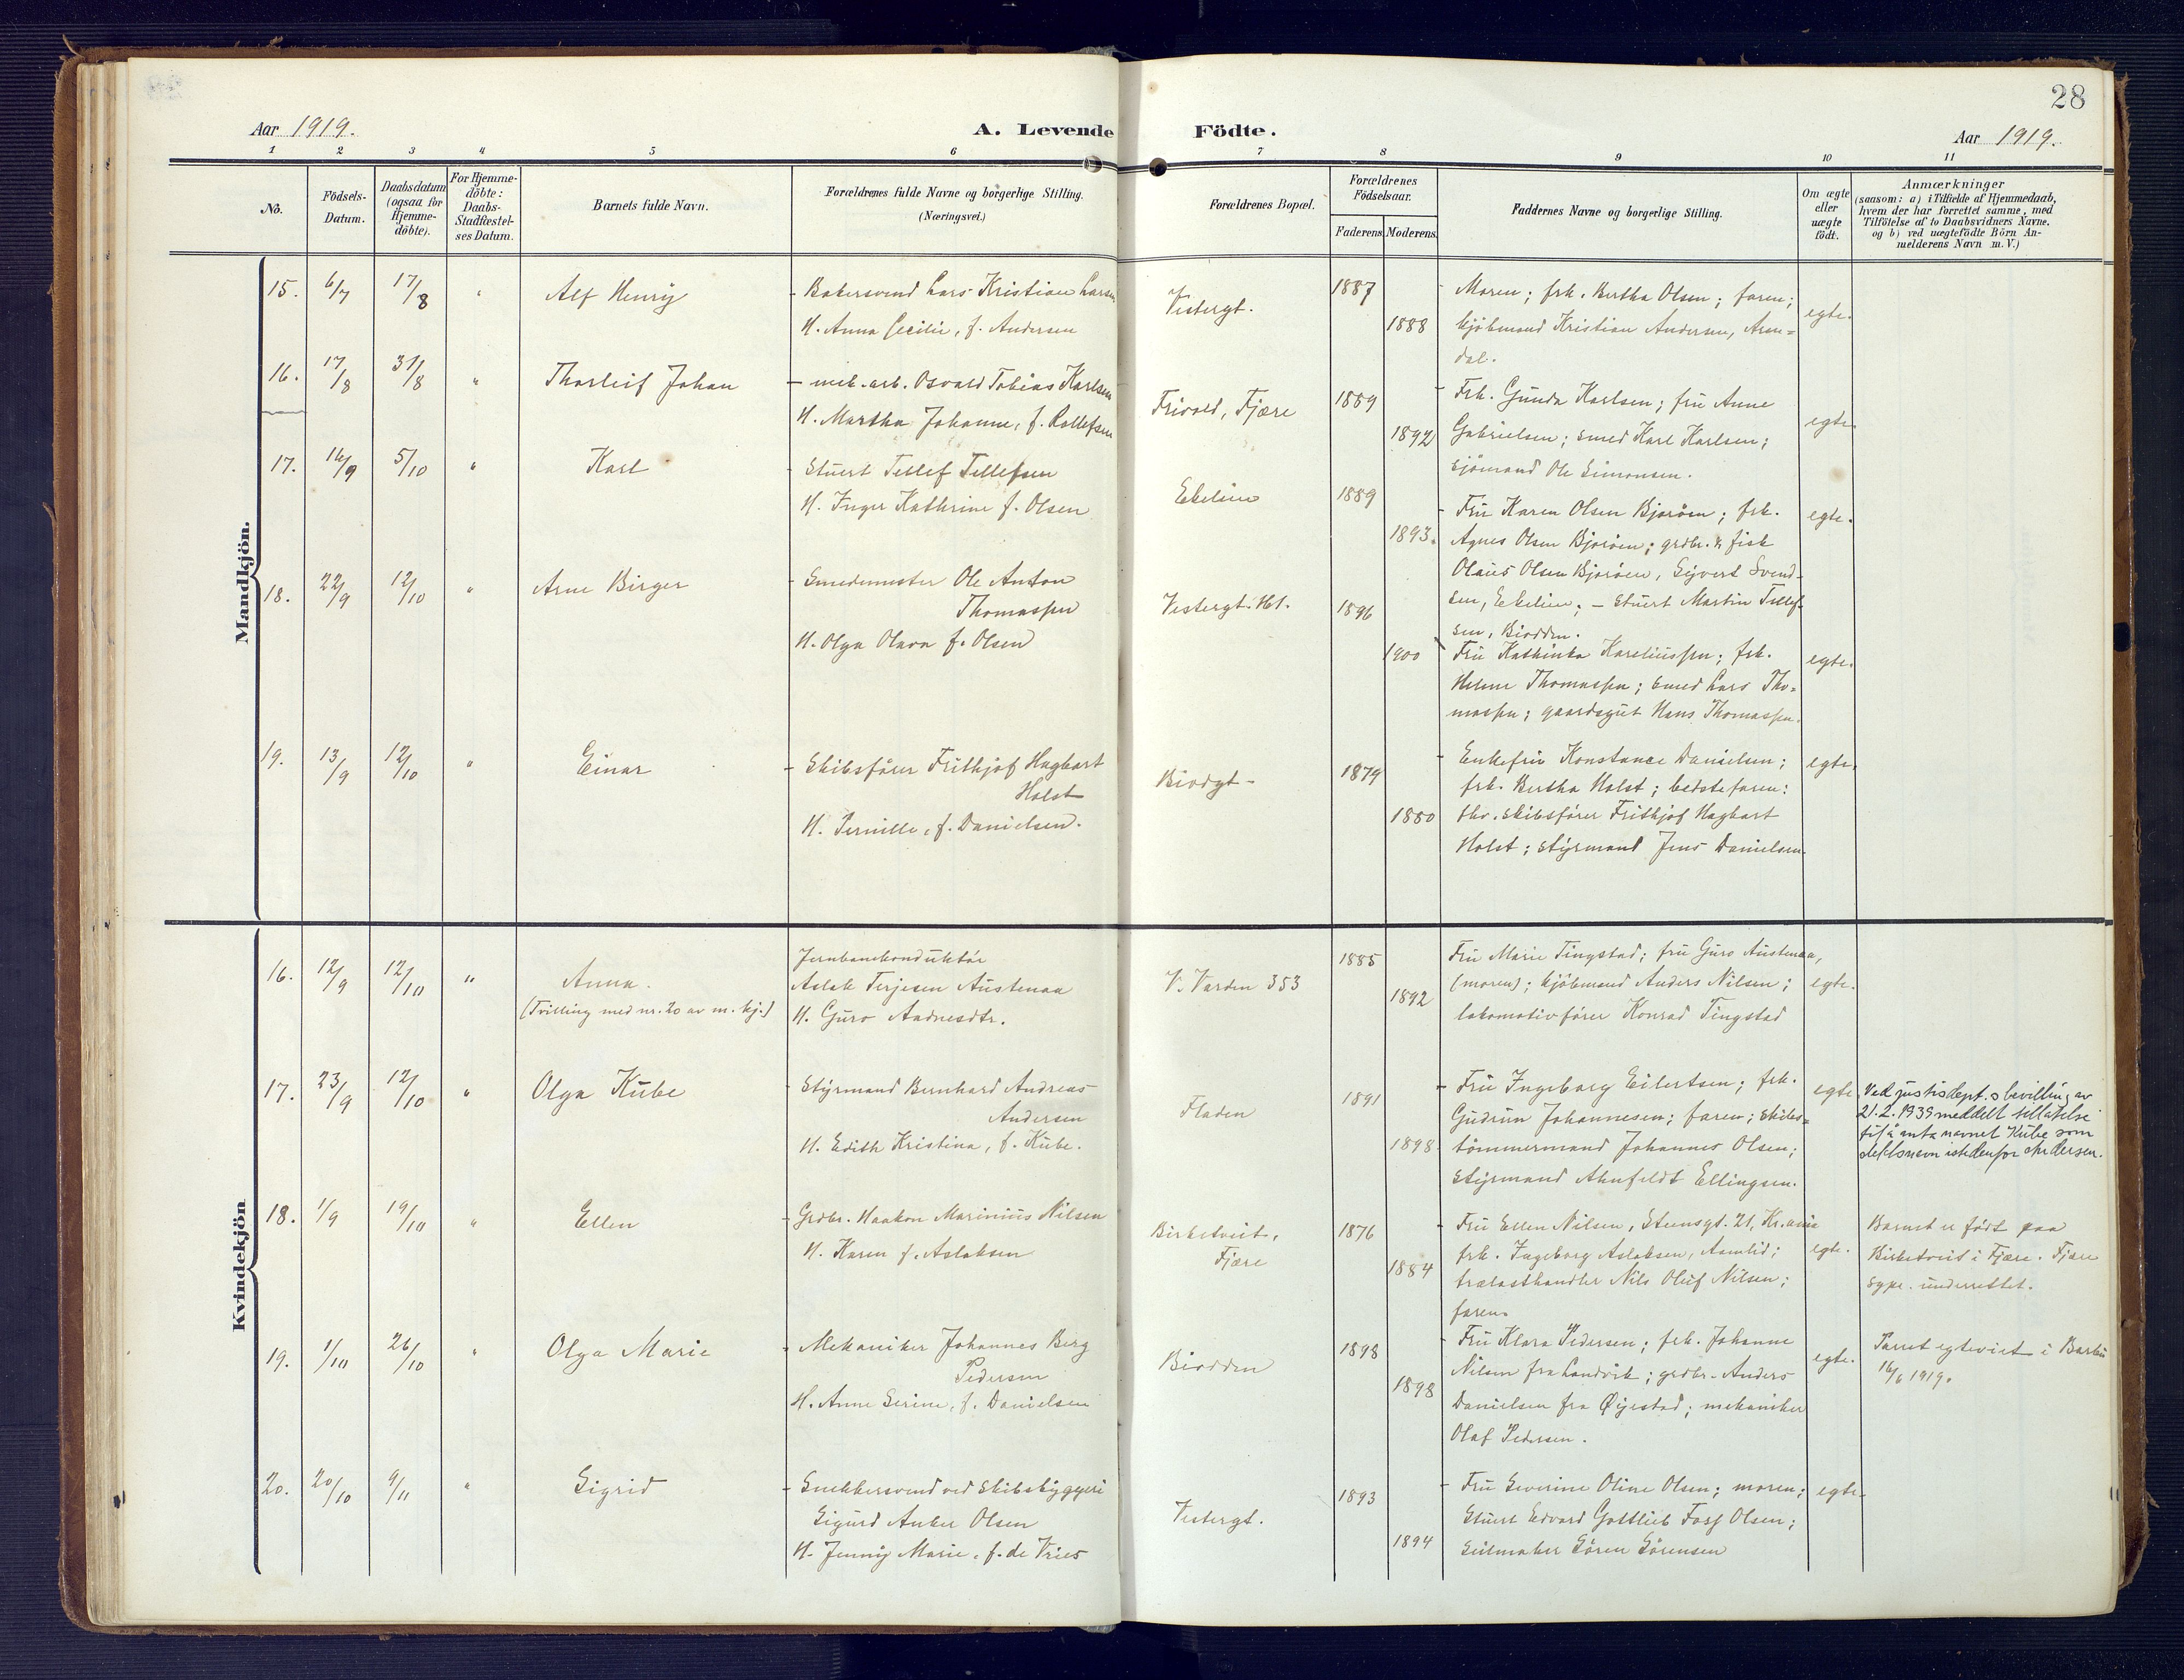 28
Aar 1919.
A. Levende Födte.
Aar 1919.
1 2 3 4 5 6 7 8 9 10 11
No.
Födsels-
Datum.
Daabsdatum
(ogsaa for
Hjemme-
döbte).
For Hjemme-
döbte:
Daabs-
Stadfæstel-
ses Datum.
Barnets fulde Navn.
Forældrenes fulde Navne og borgerlige Stilling.
(Næringsvei.)
Forældrenes Bopæl.
Forældrenes
Födselsaar.
Faderens. Moderens.
Faddernes Navne og borgerlige Stilling.
Om ægte
eller
uægte
födt.
Anmærkninger
(saasom: a) i Tilfælde af Hjemmedaab,
hvem der har forrettet samme, med
Tilföielse af to Daabsvidners Navne.
og b) ved uægtefödte Börn An-
melderens Navn m. V.)
Mandkjön.
15. 6/7 17/8 " Alf Henry
- Bakersvend Lars Kristian Larsen
H. Anna Cecilie, f. Andersen
Vestergt.
1887
1888
- Moren; frk. Bertha Olsen; faren;
kjöbmand Kristian Andersen, Aren=
dal.
egte.
16. 17/8 31/8 " Thorleif Johan
- mek. arb. Osvald Tobias Karlsen
H. Martha Johanne, f. Rollefsen
Frivold, Fjære
1889
1892
- Frk. Gunda Karlsen; fru Anne
Gabrielsen; smed Karl Karlsen;
sjömand Ole Simonsen.
egte.
17. 16/9 5/10 " Karl
- Stuert Tellef Tellefsen
H. Inger Kathrine f. Olsen
Ekelien
1889
1893.
- Fru Karen Olsen Bjoröen; frk.
Agnes Olsen Bjoröen; grdbr. & fisk
Olaus Olsen Bjoröen, Sigvert Svend-
sen, Eekelien; - Stuert Martin Tellef-
sen, Biodden.
egte.
18. 22/9 12/10 " Arne Birger
- Smedemester Ole Anton
Thomassen
H. Olga Olava f. Olsen
Vestergt.
1896
1900
- Fru Kathinka Kareliussen; frk.
Helene Thomassen; smed Lars Tho-
massen; gaardsgut Hans Thomassen.
egte.
19. 13/9 12/10 " Einar
- Skibsförer Frithjof Hagbart
Holst
H. Pernille, f. Danielsen.
Biodgt-
1879
1880
- Enkefru Konstance Danielsen;
frk. Bertha Holst; bedstefaren:
fhv. skibsförer Frithjof Hagbart
Holst; styrmand Jens Danielsen.
egte.
Kvindekjön
16. 12/9 12/10 " Anna.
(Tvilling med nr. 20 av m. kj.)
Jernbanekonduktör
Aslak Terjesen Austenaa
H. Guro Andnesdtr.
V. Varden 353
1885
1892
Fru Marie Tingstad; fru Guro Austenaa,
(moren); kjöbmand Anders Nilsen;
lokomotivförer Konrad Tingstad
egte.
17. 23/9 12/10 " Olga Kube
- Styrmand Bernhard Andreas
Andersen
H. Edith Kristina, f. Kube.
Fladen
1891
1898
- Fru Ingeborg Eilertsen; frk.
Gudrun Johannesen; faren; skibs-
tömmermand Johannes Olsen;
Styrmand Ahnfeldt Ellingsen.
egte
Ved justisdept.s bevilling av
21.2.1939 meddelt tillatelse
til å anta navnet Kube som
slektsnavn istedenfor Andersen.
18. 1/9 19/10 " Ellen
- Grdbr. Haakon Marinius Nilsen
H. Karen f. Aslaksen
Birketveit,
Fjære
1876
1884
- Fru Ellen Nilsen, Steensgt. 21, Kr.ania
frk. Ingeborg Aslaksen, Asmlid;
trælasthandler Nils Oluf Nilsen;
faren.
egte.
Barnet er født paa
Birketveit i Fjære. Fjære
sypr. underrettet.
19. 1/10 26/10 " Olga Marie
- Mekaniker Johannes Berg
Pedersen
H. Anne Serine, f. Danielsen
Biodden
1898
1898
- Fru Klara Pedersen; frk. Johanne
Nilsen fra Landvik; grdbr. Anders
Danielsen fra Øiestad; mekaniker
Olaf Pedersen.
egte.
Parret egteviet i Barbu
14/6 1919.
20. 20/10 9/11 " Sigrid
- Snekkersvend ved Skibsbyggeri
Sigurd Anker Olsen
H. Jenny Marie, f. de Vries
Vestergt.
1893
1894
- Fru Severine Oline Olsen; moren;
Stuert Edvard Gottlieb Olsen;
Seilmaker Sören Sörensen
egte.